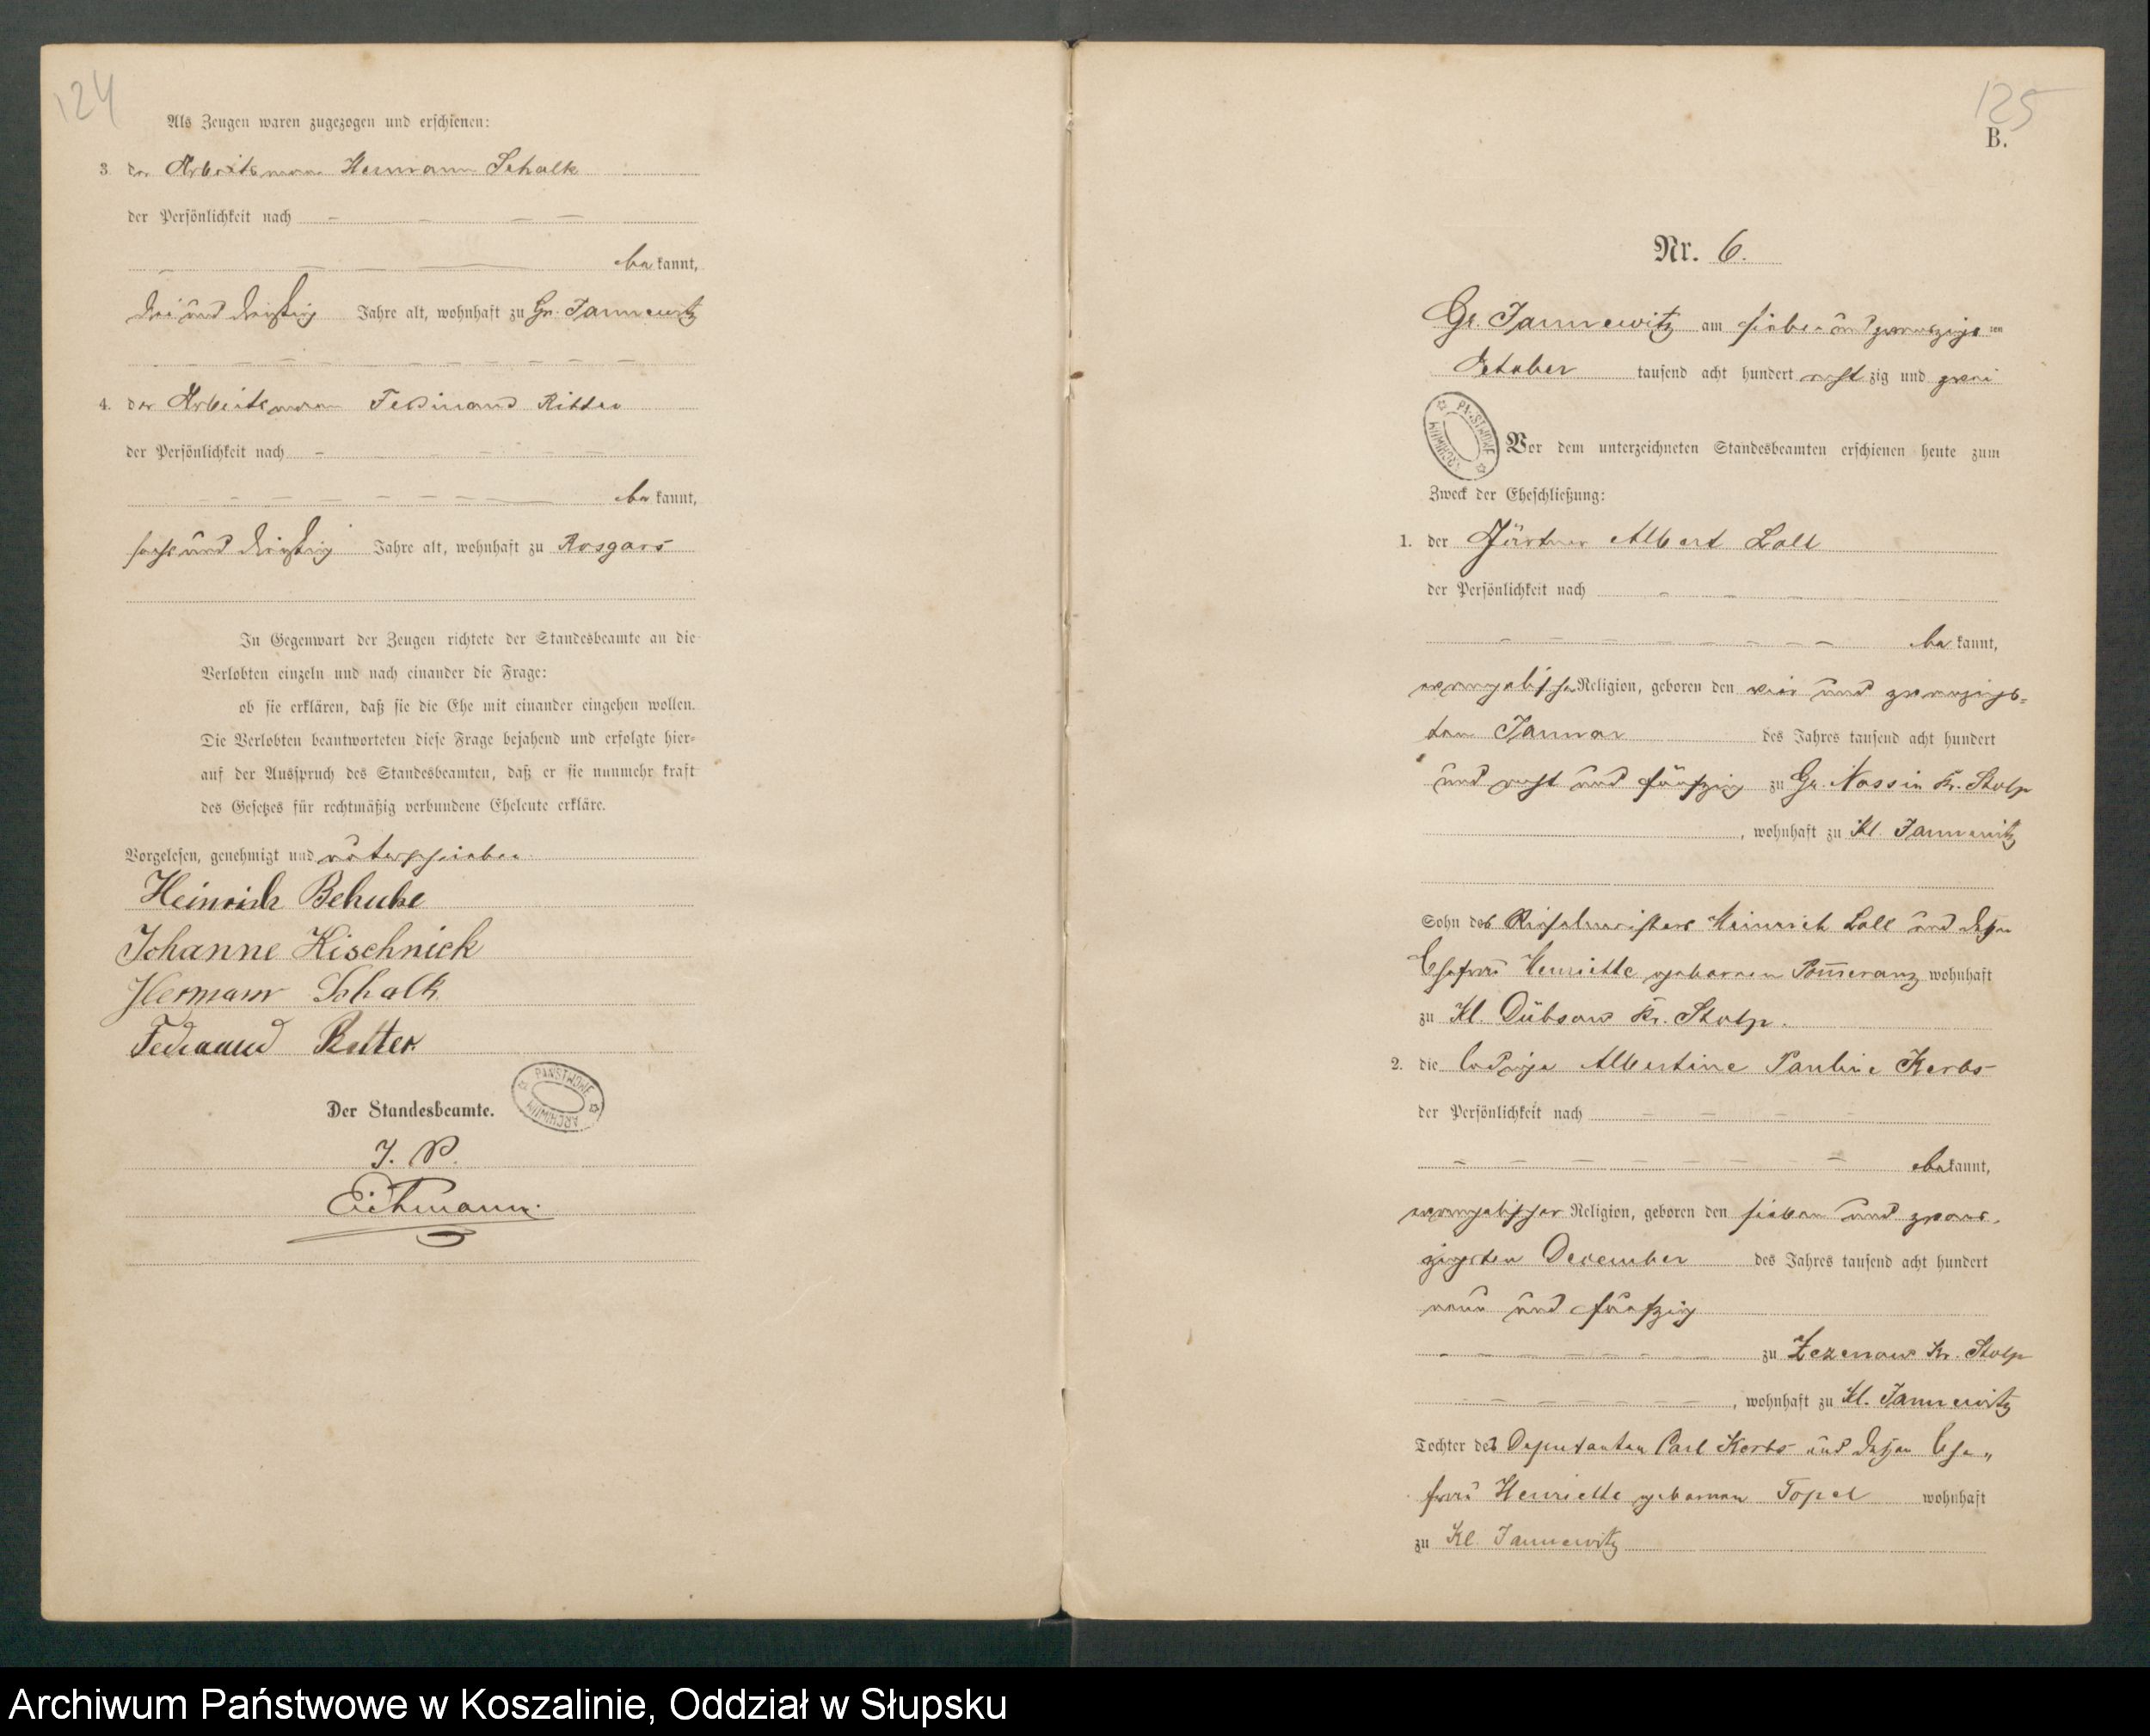 124
Als Zeugen waren zugezogen und erschienen:
3. der Arbeitsmann Hermann Schalk
der Persönlichkeit nach
bekannt,
drei und dreißig Jahre alt, wohnhaft zu Gr. Jannewitz
4. der Arbeitsmann Ferdinand Ritter
der Persönlichkeit nach
bekannt,
sechs und dreißig Jahre alt, wohnhaft zu Rosgars
In Gegenwart der Zeugen richtete der Standesbeamte an die
Verlobten einzeln und nach einander die Frage:
ob sie erklären, daß sie die Ehe mit einander eingehen wollen.
Die Verlobten beantworteten diese Frage bejahend und erfolgte hier-
auf der Ausspruch des Standesbeamten, daß er sie nunmehr kraft
des Gesetzes für rechtmäßig verbundene Eheleute erkläre.
Vorgelesen, genehmigt und unterschrieben
Heinrich
Johanne Kischnick
Hermann Schalk
Ritter
PAŃSTWOWE ARCHIWUM
Der Standesbeamte.
Eichmann.
125
B.
Nr. 6.
Gr. Jannewitz am sieben und zwanzigsten
October tausend acht hundert achtzig und zwei
PAŃSTWOWE ARCHIWUM
Vor dem unterzeichneten Standesbeamten erschienen heute zum
Zweck der Eheschließung:
1. der Gärtner Albert Loll
der Persönlichkeit nach
bekannt,
evangelischer Religion, geboren den vier und zwanzigs-
ten Januar des Jahres tausend acht hundert
und acht und fünfzig zu Gr. Nossin Kr. Stolp
, wohnhaft zu Kl. Jannewitz
Sohn des Heinrich Loll und dessen
Ehefrau Henriette geborenen Pom̄eranz wohnhaft
zu Kl. Dübsow Kr. Stolp.
2. die ledige Albertine Pauline Kerbs
der Persönlichkeit nach
bekannt,
evangelischer Religion, geboren den sieben und zwan-
zigsten December des Jahres tausend acht hundert
neun und fünfzig
zu Zezenow Kr. Stolp
, wohnhaft zu Kl. Jannewitz
Tochter des Deputanten Carl Kerbs und dessen Ehe-
frau Henriette geborenen Topel wohnhaft
zu Kl. Jannewitz
Archiwum Państwowe w Koszalinie, Oddział w Słupsku